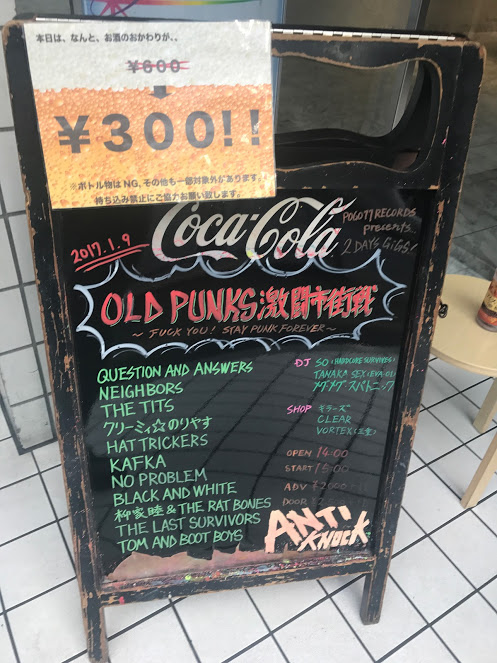 本日は、なんと、お酒のおかわりが、、
¥600
¥300!!
※ボトル物はNG,その他も一部対象外があります。
持ち込み禁止にご協力お願い致します。
Coca-Cola
POGO77 RECORDS
presents...
2 DAYS GIGS!
2017.1.9
OLD PUNKS激闘市街戦
～FUCK YOU! STAY PUNK FOREVER～
QUESTION AND ANSWERS
NEIGHBORS
THE TITS
クリーミィ☆のりやす
HAT TRICKERS
KAFKA
NO PROBLEM
BLACK AND WHITE
柳家睦&THE RAT BONES
THE LAST SURVIVORS
TOM AND BOOT BOYS
DJ SO(HARDCORE SURVIVES)
TANAKA SEX
メグメグスパトニック
SHOP キラーズ
CLEAR
VORTEX(三重)
OPEN 14:00
START 15:00
ADV ¥2000
DOOR
ANTI
KNOCK